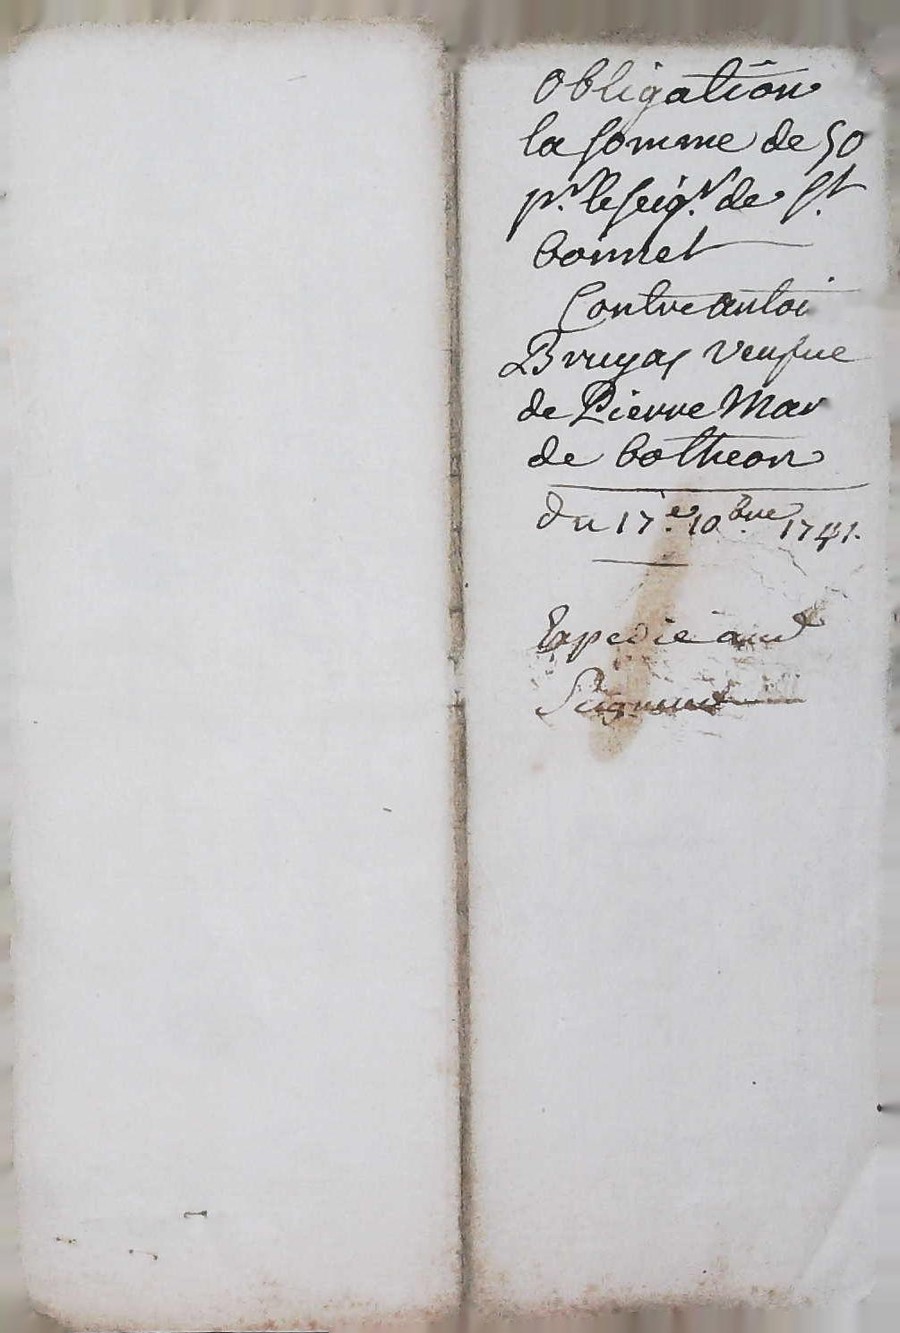 Obligation
la somme de 50
pr. le seigr. de St
bonnet
Contre antoi
Bruyas veufve
de Pierre Mar
de botheon
du 17e. 10bre 1741.
Expedié aud
Seigneur